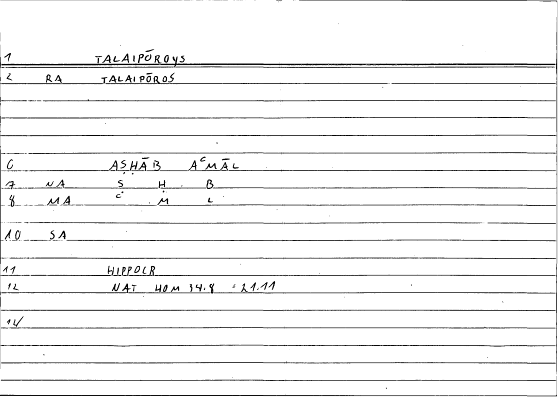 1 TALAIPŌROYS
2 RA TALAIPŌROS
6 AṢḤĀB AᶜMĀL
7 NA Ṣ Ḥ B
8 MA ᶜ M L
10 SA
11 HIPPOCR
12 NAT HOM 34.8 = 21.11
14